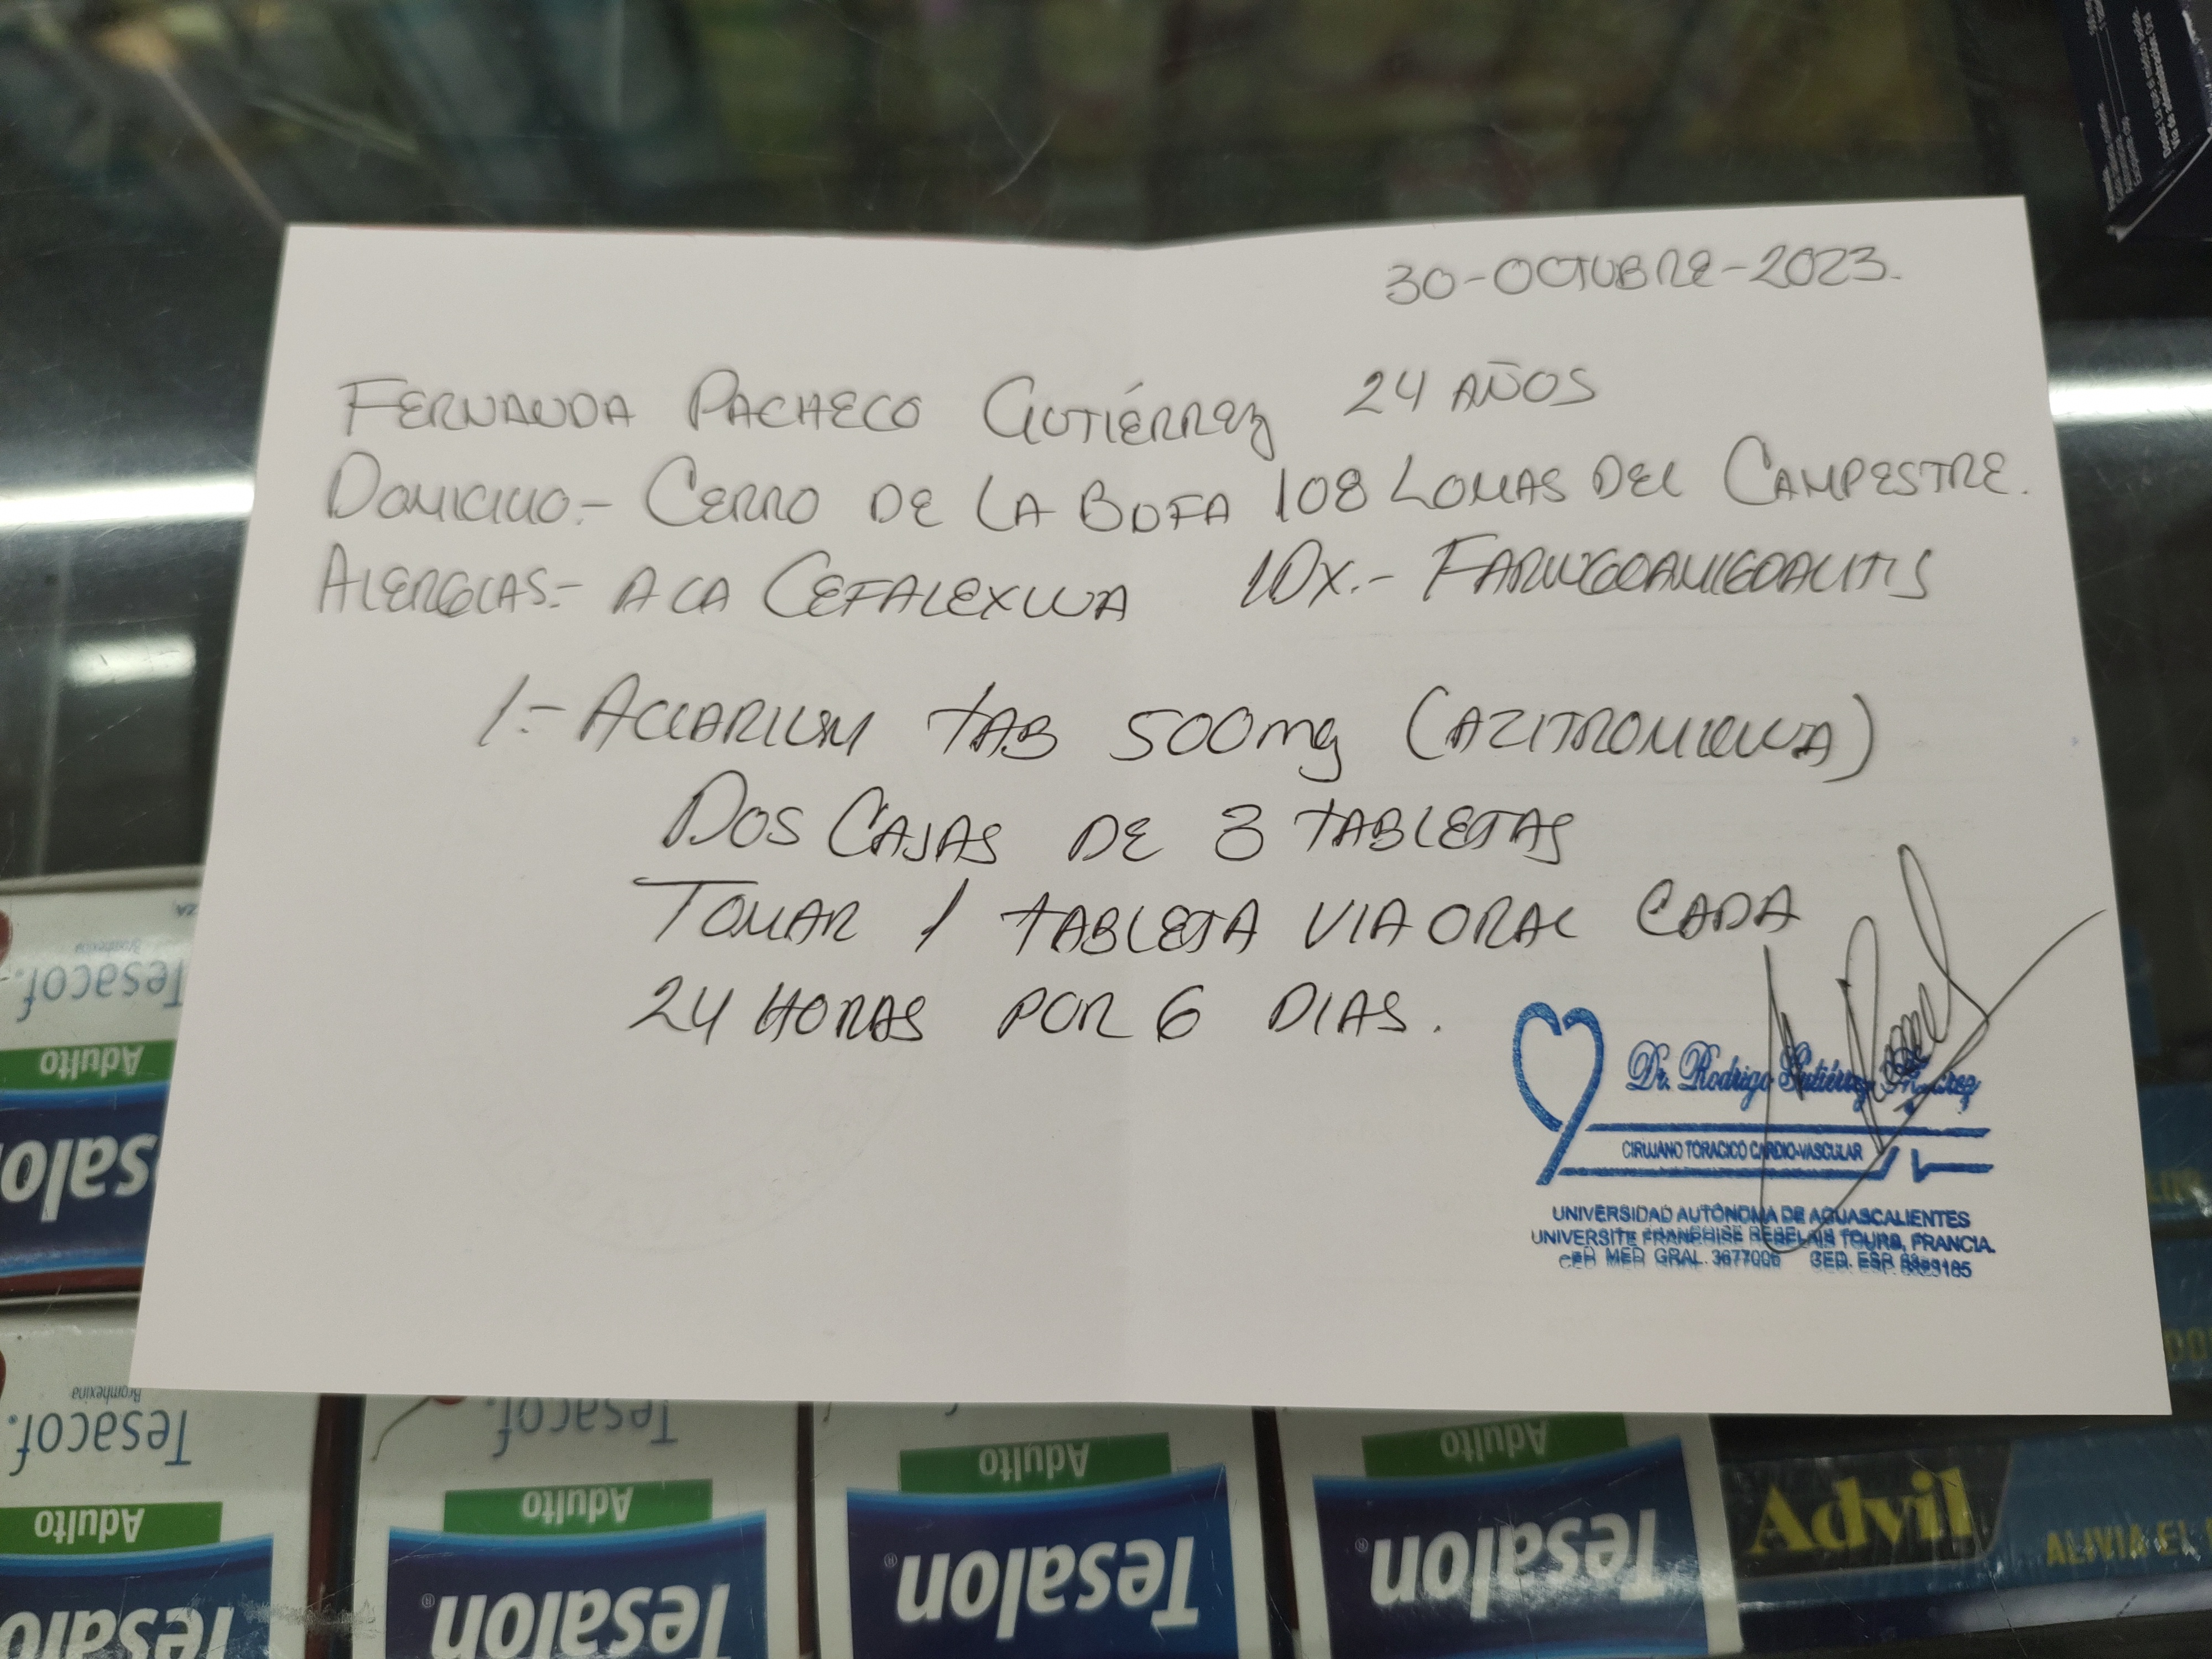 30-OCTUBRE-2023.
FERNANDA PACHECO GUTIÉRREZ 24 AÑOS
DOMICILIO.- CERRO DE LA BUFA 108 LOMAS DEL CAMPESTRE.
ALERGIAS.- A LA CEFALEXINA IDX.- FARINGOAMIGDALITIS
1.- TAB 500mg (AZITROMICINA)
DOS CAJAS DE 3 TABLETAS
TOMAR 1 TABLETA VIA ORAL CADA
24 HORAS POR 6 DIAS.
Dr. Rodrigo Gutiérrez
CIRUJANO TORACICO CARDIO-VASCULAR
UNIVERSIDAD AUTÓNOMA DE AGUASCALIENTES
UNIVERSITE TOURS, FRANCIA.
CED MED GRAL. 3677006 CED. ESP.
Tesacof.
Bromhexina
Adulto
salon
Bromhexina
Tesacof.
Adulto
Tesalon
Tesacof.
Adulto
Tesalon®
Adulto
Tesalon®
Adulto
Tesalon®
Advil
ALIVIA EL